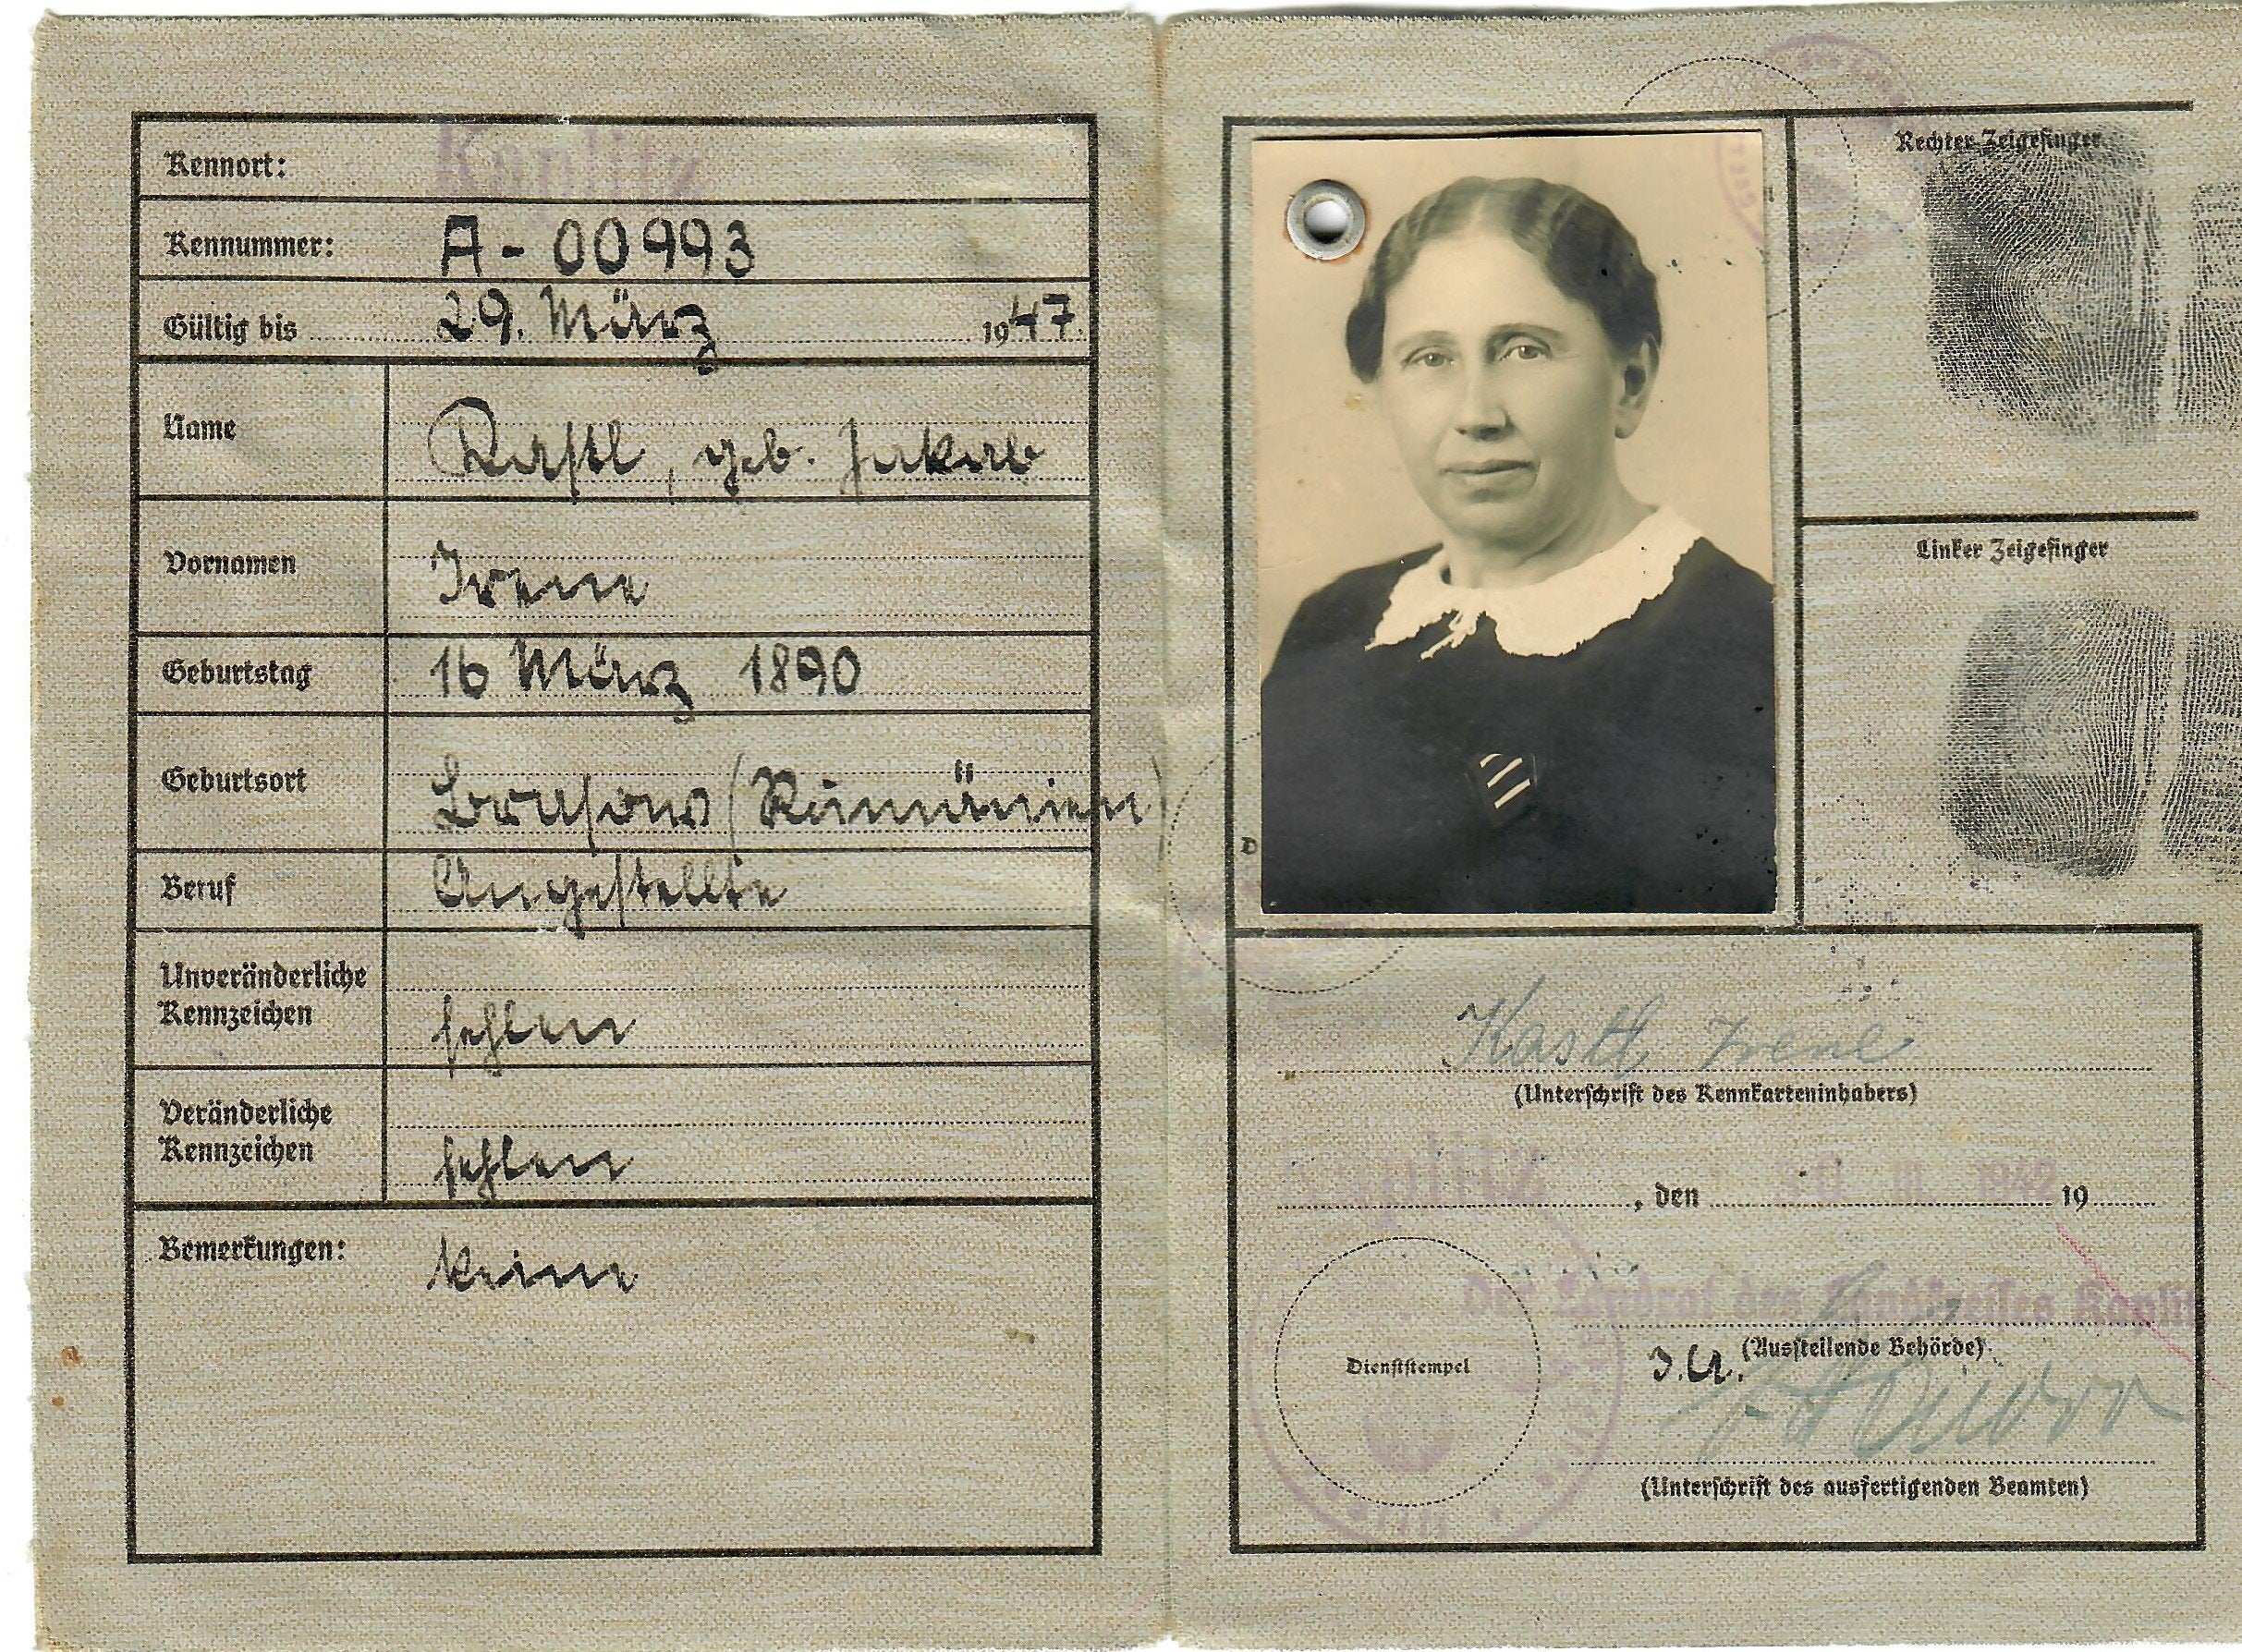 Kennort: Kaplitz
Kennummer: A-00993
Gültig bis 29. März 1947
Name Kastl, geb. Jakab
Vornamen Irene
Geburtstag 16 März 1890
Geburtsort (Rumänien
Beruf Angestellte
Unveränderliche
Kennzeichen fehlen
Veränderliche
Kennzeichen fehlen
Bemerkungen: keine
Rechter Zeigefinger
Linker Zeigefinger
Kastl Irene
(Unterschrift des Kennkarteninhabers)
, den 1942 19
Der Landrat des Landkreises Kaplitz
(Ausstellende Behörde)
Dienststempel
I.A.
(Unterschrift des ausfertigenden Beamten)